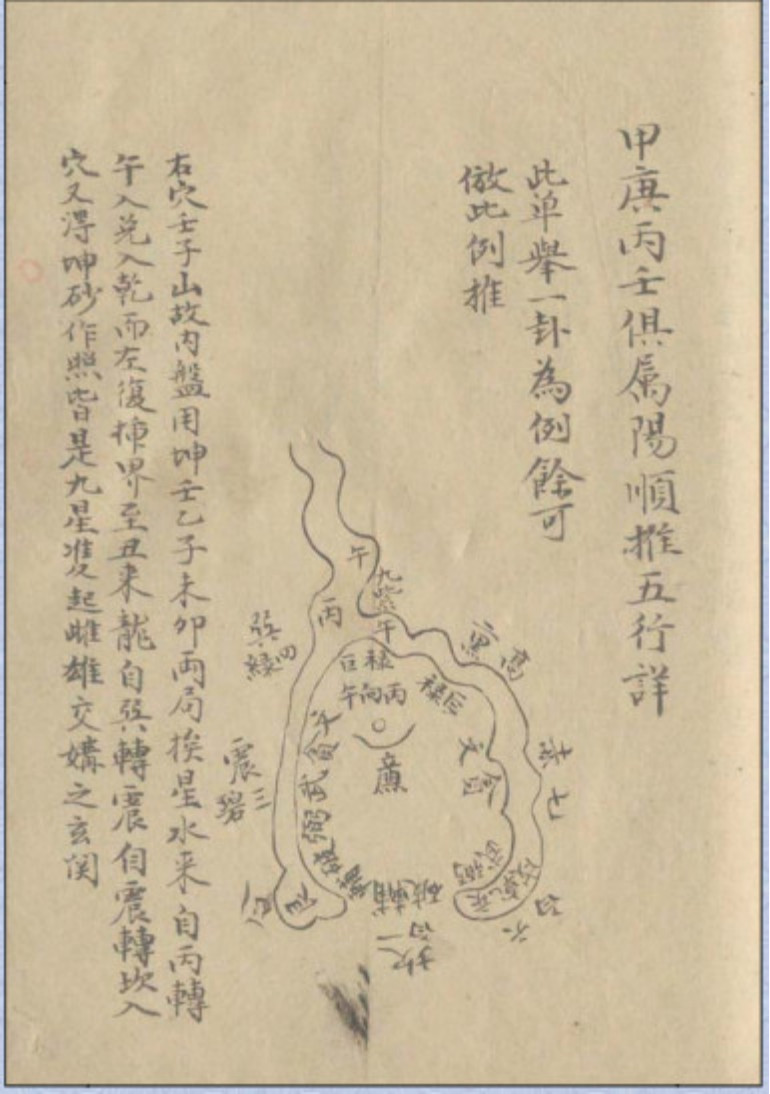 甲庚丙壬俱属陽順推五行詳
此单舉一卦為例餘可
倣此例推
午
九紫
午
丙
巨祿
午向丙
巽
四綠
震
三碧
廉
文
貪
武
破
輔
坎一白
赤七
六白
右穴壬子山故内盤用坤壬乙子未卯兩局挨星水来自丙轉
午入兑入乾而左復揷界至丑来龍自巽轉震自震轉坎入
穴又得坤砂作照皆是九星准起雌雄交媾之玄関